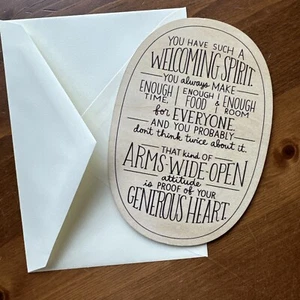 YOU HAVE SUCH A
WELCOMING SPIRIT.
YOU always MAKE
ENOUGH TIME, ENOUGH FOOD & ENOUGH ROOM
for EVERYONE.
AND YOU PROBABLY
don't think twice about it.
THAT kind OF
ARMS-WIDE-OPEN
attitude
is PROOF OF YOUR
GENEROUS HEART.